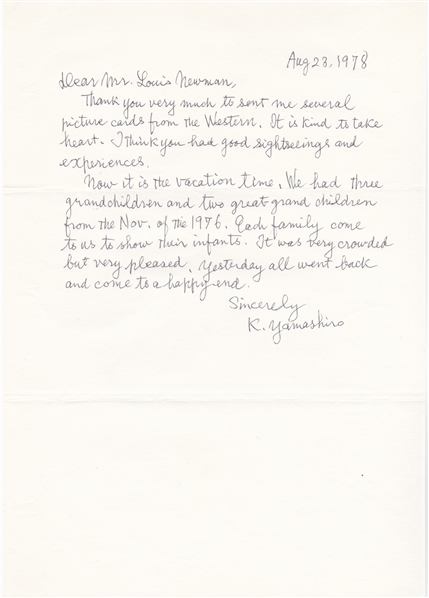 Aug 23, 1978
Dear Mr. Louis Newman,
Thank you very much to sent me several
picture cards from the Western. It is kind to take
heart. I think you had good sightseeings and
experiences.
Now it is the vacation time. We had three
grandchildren and two great grand children
from the Nov. of the 1976. Each family come
to us to show their infants. It was very crowded
but very pleased. Yesterday all went back
and come to a happy end.
Sincerely
K. Yamashiro